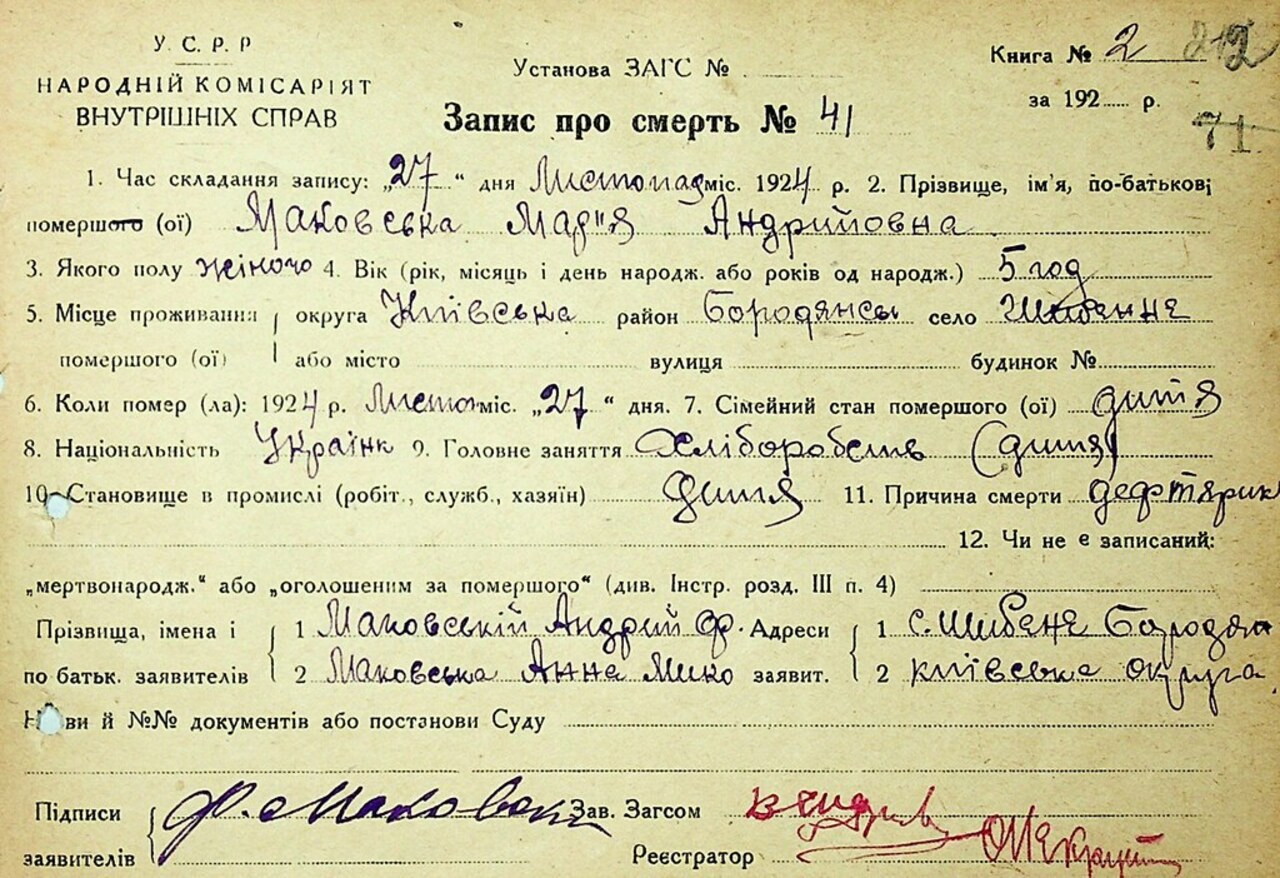 У. С. Р. Р
НАРОДНІЙ КОМІСАРІЯТ
ВНУТРІШНІХ СПРАВ
Установа ЗАГС №
Книга № 2 212
за 192 р.
71
Запис про смерть № 41
1. Час складання запису: „27“ дня Листопад міс. 1924 р. 2. Прізвище, ім'я, по-батькові
помершого (ої) Маковська Марія Андрийовна
3. Якого полу жіночо 4. Вік (рік, місяць і день народж. або років од народж.) 5 год
5. Місце проживання округа Київська район Бородянсь село Шибенне
помершого (ої) або місто вулиця будинок №
6. Коли помер (ла): 1924 р. Листоп міс. „27“ дня. 7. Сімейний стан помершого (ої) дитя
8. Національність Українк 9. Головне заняття Хліборобств (дитя)
10. Становище в промислі (робіт., служб., хазяїн) дитя 11. Причина смерти дефтярик
12. Чи не є записаний:
„мертвонародж.“ або „оголошеним за помершого“ (див. Інстр. розд. III п. 4)
Прізвища, імена і 1 Маковській Андрий Ф. Адреси 1 с. Шибене Бородян
по батьк. заявителів 2 Маковська Анна Мико заявит. 2 київська округа
Назви й №№ документів або постанови Суду
Підписи Ф. Маковск Зав. Загсом
заявителів Реєстратор